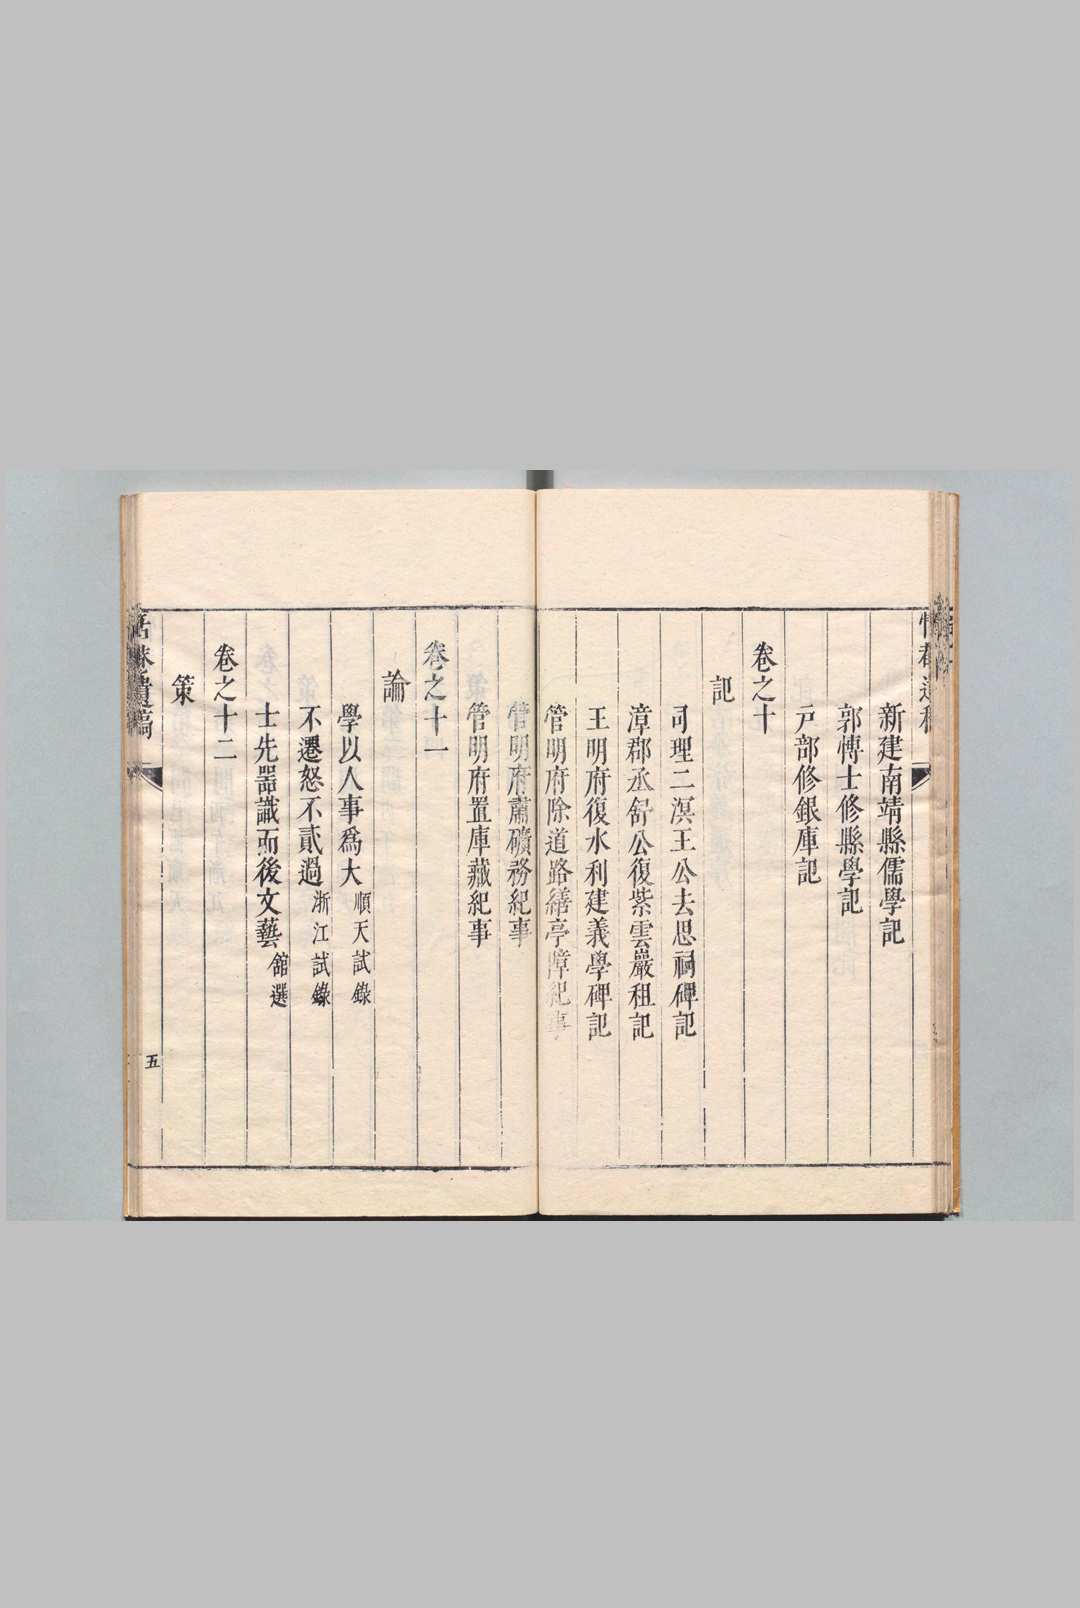 新建南靖縣儒學記
郭博士修縣學記
戶部修銀庫記
卷之十
記
司理二溟王公去思祠碑記
漳郡丞舒公復紫雲巖租記
王明府復水利建義學碑記
管明府除道路繕亭障紀事
管明府肅礦務紀事
管明府置庫藏紀事
卷之十一
論
學以人事爲大順天試錄
不遷怒不貳過浙江試錄
士先器識而後文藝舘選
卷之十二
策
遺稿
五